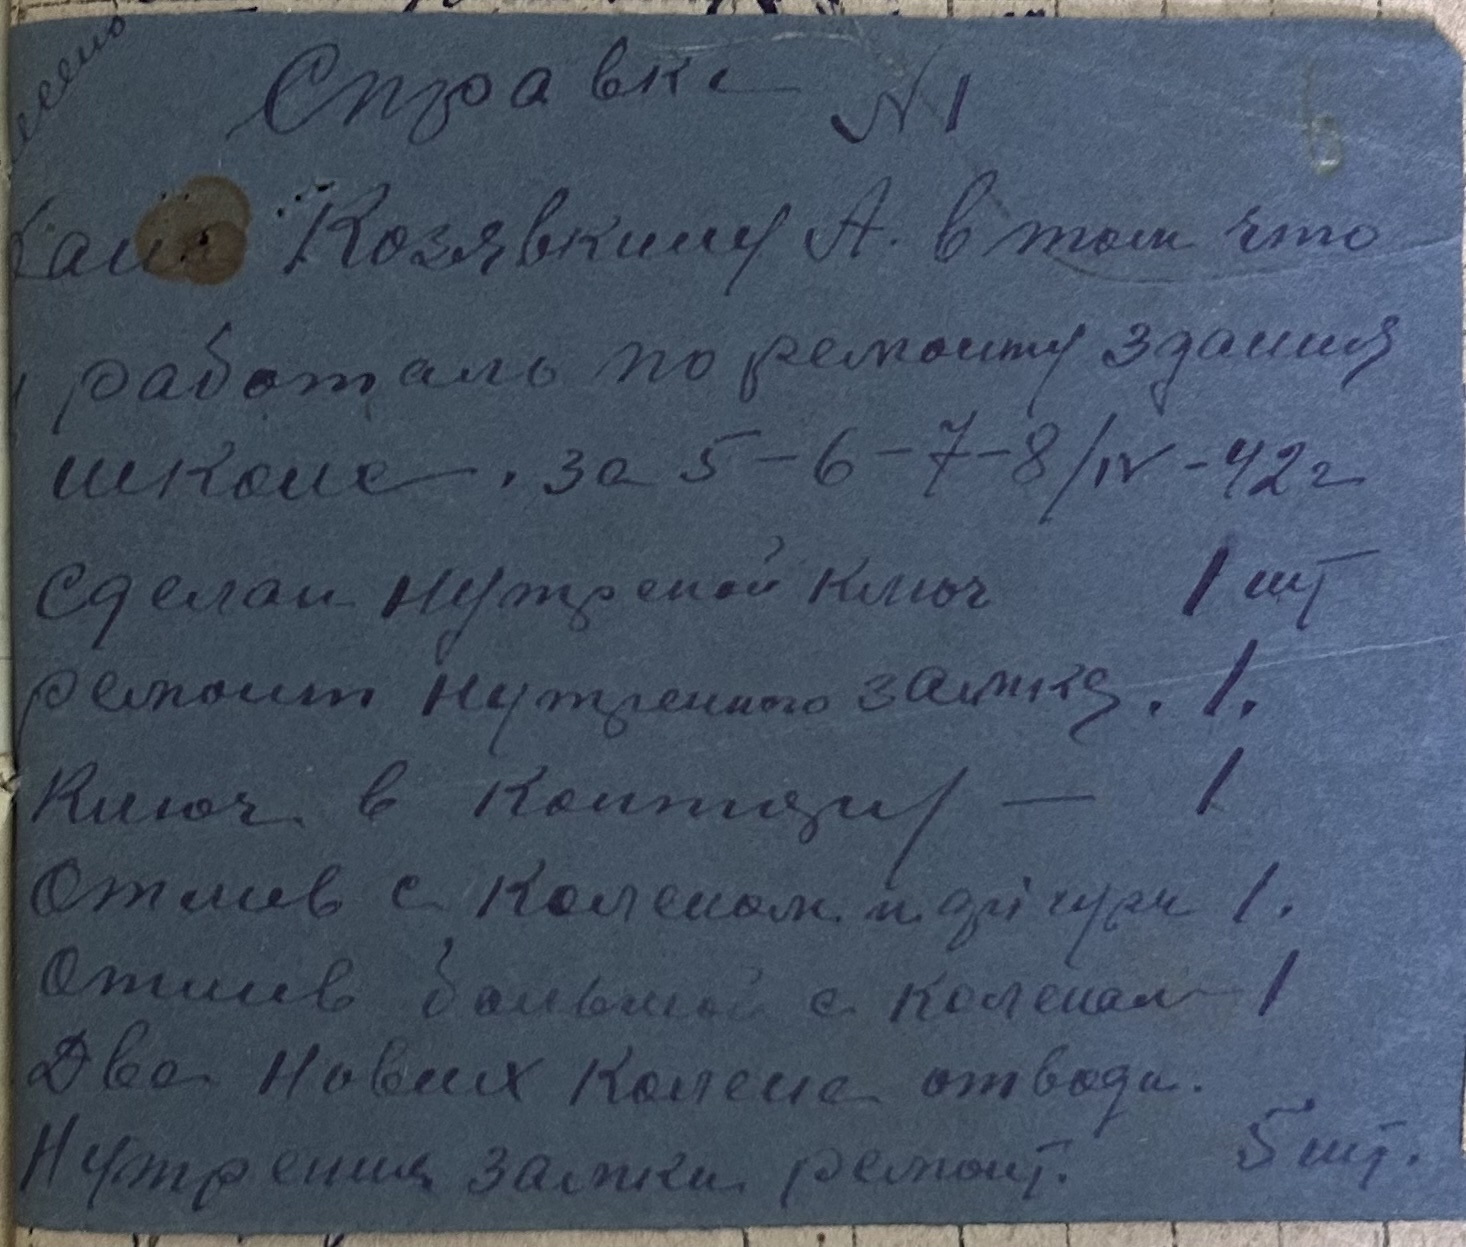 Справка № 1
Дана Козявкину А. в том что
работаль по ремонту здания
школе. за 5-6-7-8/IV-42г
Сделан нутреной ключ 1 шт
ремонт нутренного замка. 1.
Ключ в контору — 1
Отлив с коленом 1.
Отлив большой с коленом 1
Два новых колена отвода.
Нутрения замки ремонт. 5 шт.